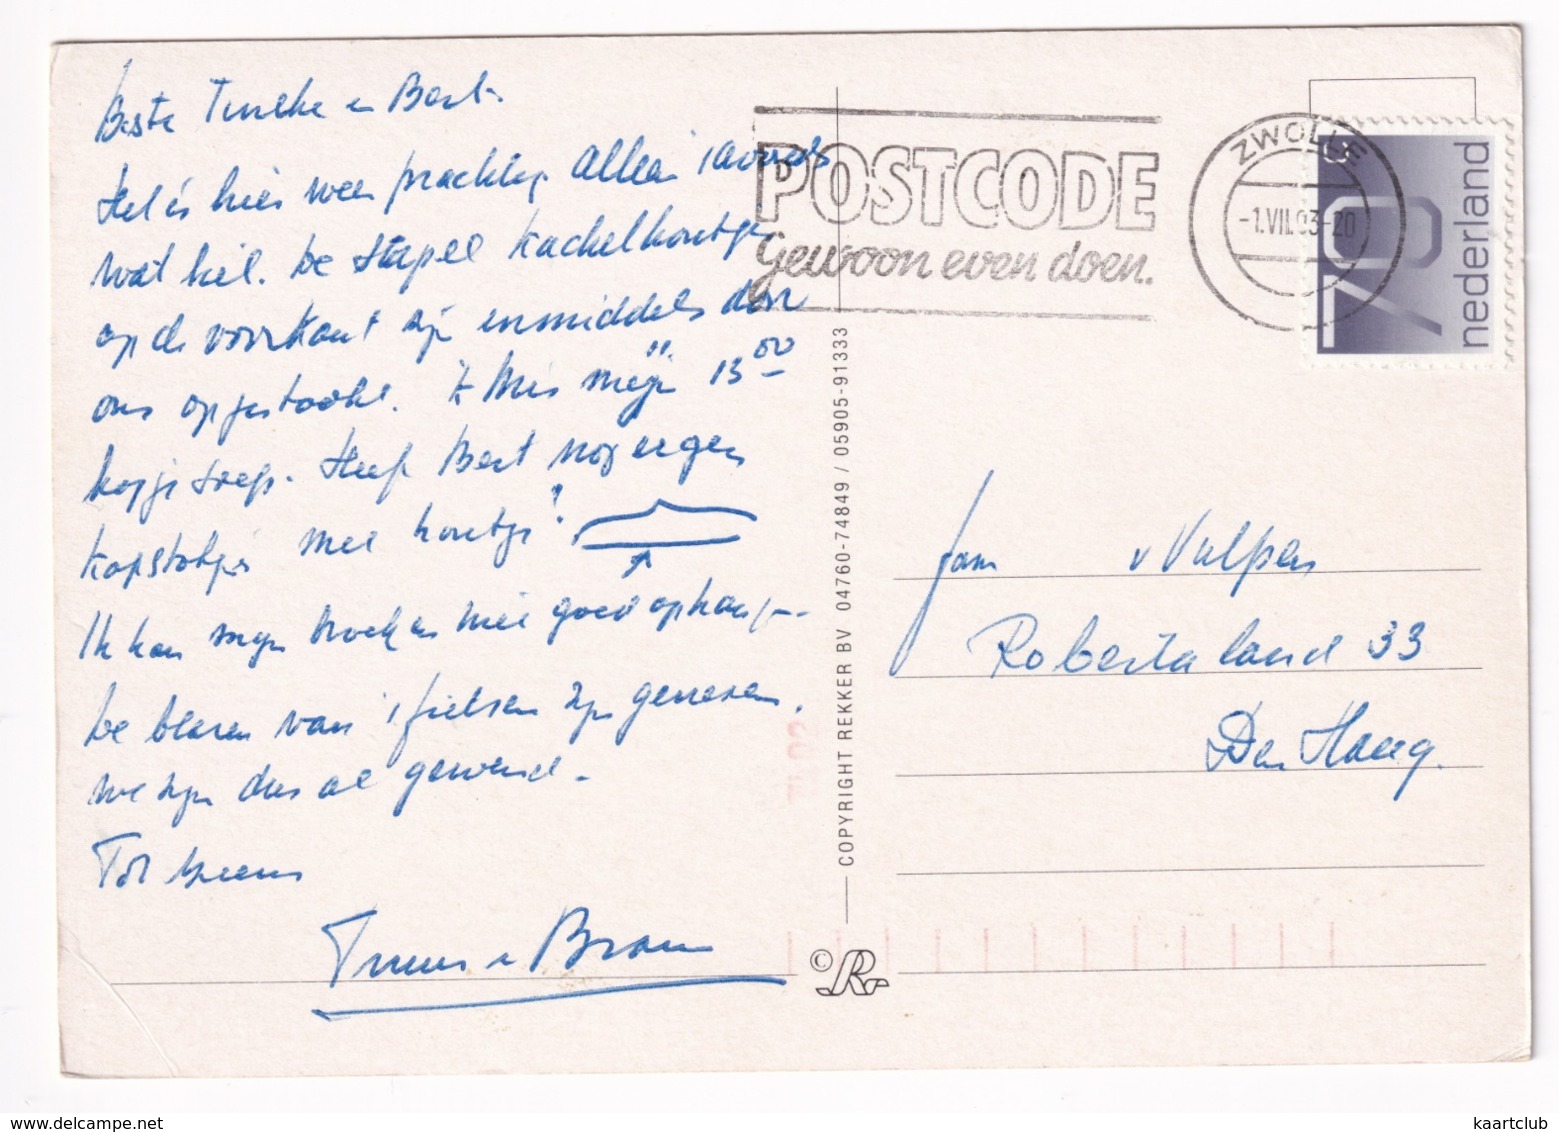 Beste Tineke en Bert.
Het is hier weer prachtig alleen 's avonds
wat kil. De stapel kachelhoutjes
op de voorkant zijn inmiddels door
ons opgestookt. Ik mis mijn 13 00
kopje soep. Heeft Bert nog ergens
kapstokjes met houtje!
Ik kan mijn broeken niet goed ophangen.
De blaren van 't fietsen zijn genezen.
We zijn dus al gewend.
Tot ziens
Truus en Bram
POSTCODE
Gewoon even doen.
ZWOLLE
-1.VII.93-20
70
nederland
COPYRIGHT REKKER BV 04760-74849 / 05905-91333
Fam v Vulpen
Robertaland 33
Den Haag.
© R
kaartclub
www.delcampe.net